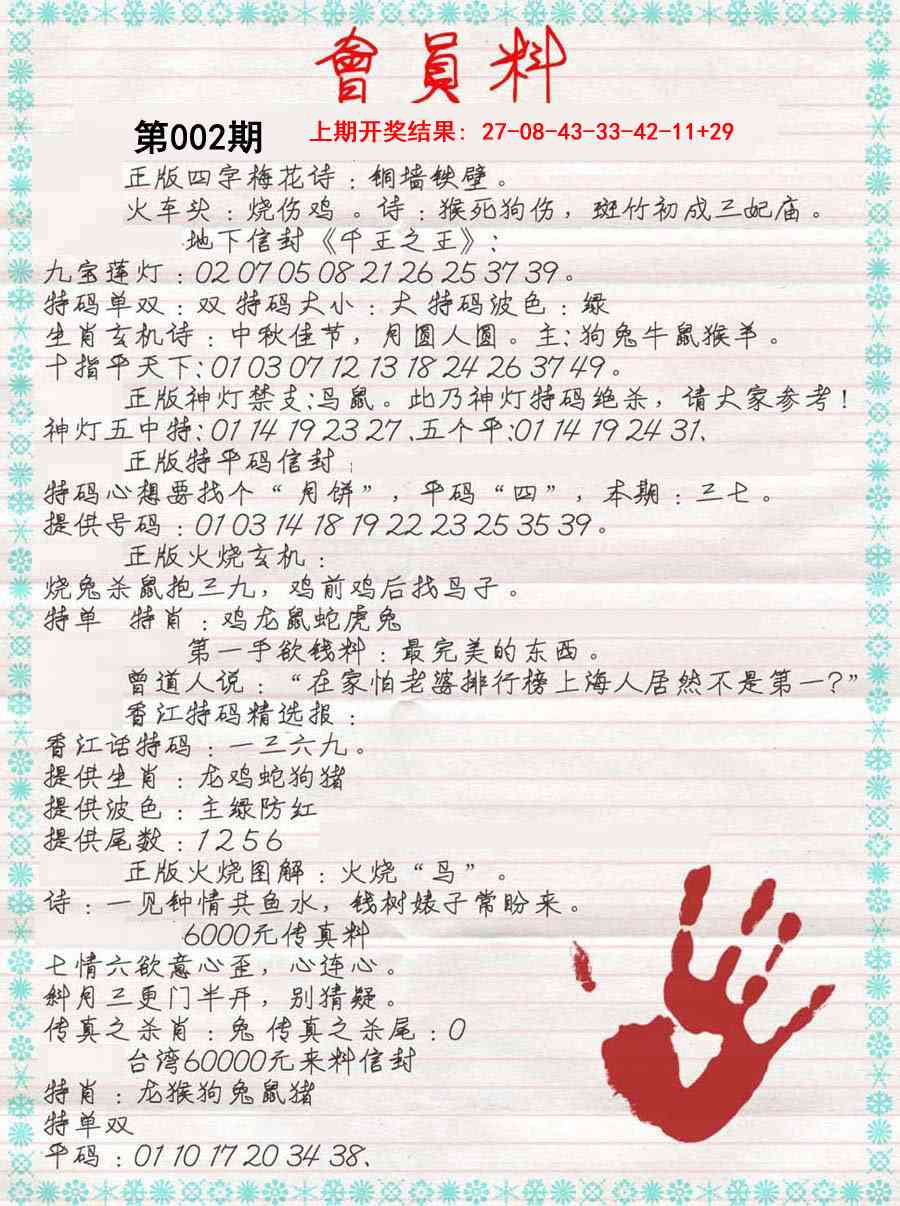 會員料
第002期 上期开奖结果: 27-08-43-33-42-11+29
正版四字梅花诗：铜墙铁壁。
火车头：烧伤鸡。诗：猴死狗伤，斑竹初成三妃庙。
地下信封《千王之王》：
九宝莲灯：02 07 05 08 21 26 25 37 39。
特码单双：双 特码大小：大 特码波色：绿
生肖玄机诗：中秋佳节，月圆人圆。主:狗兔牛鼠猴羊。
十指平天下:01 03 07 12 13 18 24 26 37 49。
正版神灯禁支:鸟鼠。此乃神灯特码绝杀，请大家参考！
神灯五中特:01 14 19 23 27、五个平:01 14 19 24 31、
正版特平码信封：
特码心想要找个“月饼”，平码“四”，本期：三七。
提供号码：01 03 14 18 19 22 23 25 35 39。
正版火烧玄机：
烧兔杀鼠抱三九，鸡前鸡后找鸟子。
特单 特肖：鸡龙鼠蛇虎兔
第一手欲钱料：最完美的东西。
曾道人说：“在家怕老婆排行榜上海人居然不是第一?”
香江特码精选报：
香江话特码：一三六九。
提供生肖：龙鸡蛇狗猪
提供波色：主绿防红
提供尾数：1 2 5 6
正版火烧图解：火烧“鸟”。
诗：一见钟情共鱼水，钱树婊子常盼来。
6000元传真料
七情六欲意心歪，心连心。
斜月三更门半开，别猜疑。
传真之杀肖：兔 传真之杀尾：0
台湾60000元来料信封
特肖：龙猴狗兔鼠猪
特单双
平码：01 10 17 20 34 38、